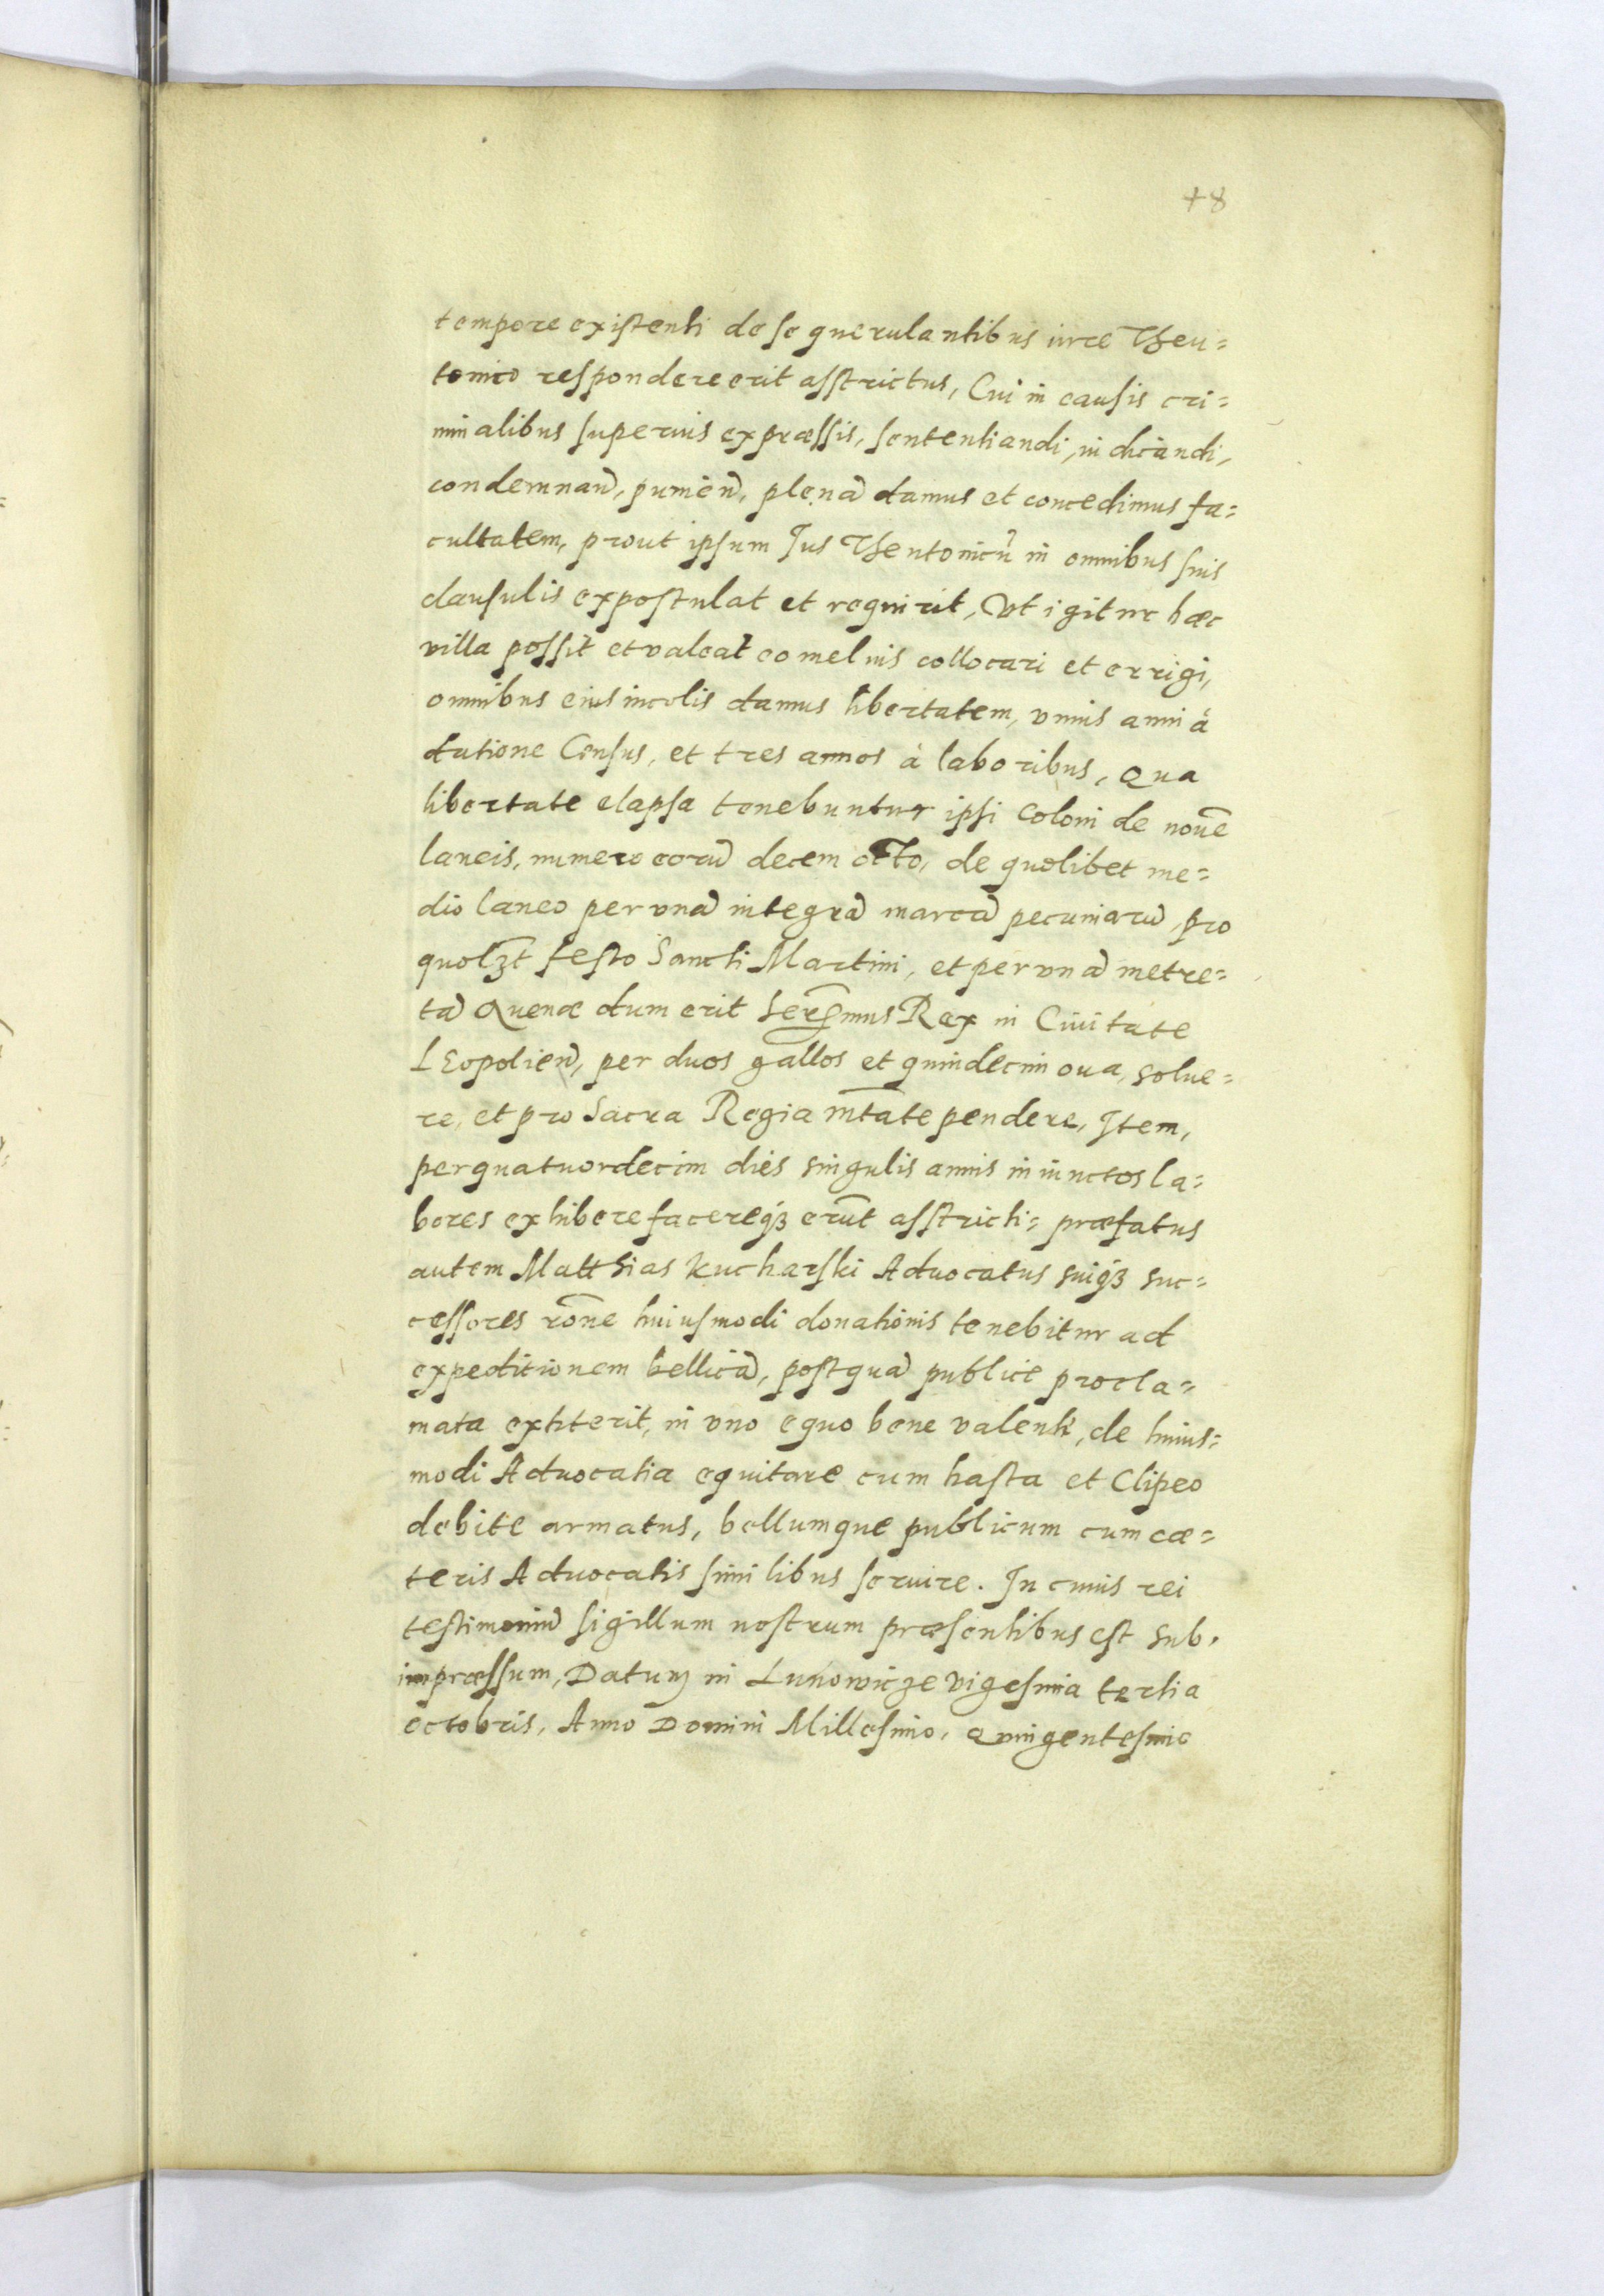 48
tempore existenti de se querulantibus iure Theu=
tonico respondere erit asstrictus, Cui in causis cri=
minalibus superius expræssis, sententiandi, iudicandi,
condemnan̄, punien̄, plenā damus et concedimus fa=
cultatem, prout ipsum Jus Theutonicū in omnibus suis
clausulis expostulat et requirit, Vt igitur hæc
villa possit et valeat eo melius collocari et errigi,
omnibus eius incolis damus libertatem, vnius anni à
datione Census, et tres annos à laboribus, Qua
libertate elapsa tenebuntur ipsi Coloni de nouē
laneis, numero eorū decem octo, de quolibet me=
dio laneo per vnā integrā marcā pecuniarū, pro
quolȝt festo Sancti Martini, et per vnā metre=
tā Auenæ dum erit Serēmus Rex in Ciuitate
LEopolien̄, per duos gallos et quindecim oua, solue=
re, et pro Sacra Regia mtāte pendere, Jtem,
per quatuordecim dies singulis annis iniunctos la=
bores exhibere facereqȝ erūt asstricti= præfatus
autem Matthias Kucharski Aduocatus suiqȝ suc=
cessores rōne huiusmodi donationis tenebitur ad
expeditionem bellicā, postquā publice procla=
mata extiterit, in vno equo bene valenti, de huius=
modi Aduocatia equitare cum hasta et Clipeo
debite armatus, bellumque publicum cum cæ=
teris Aduocatis similibus seruire. In cuius rei
testimoniū sigillum nostrum præsentibus est sub,
impræssum, Datum in Lunowicze vigesima tertia
octobris, Anno Domini Millesimo, Quingentesimo